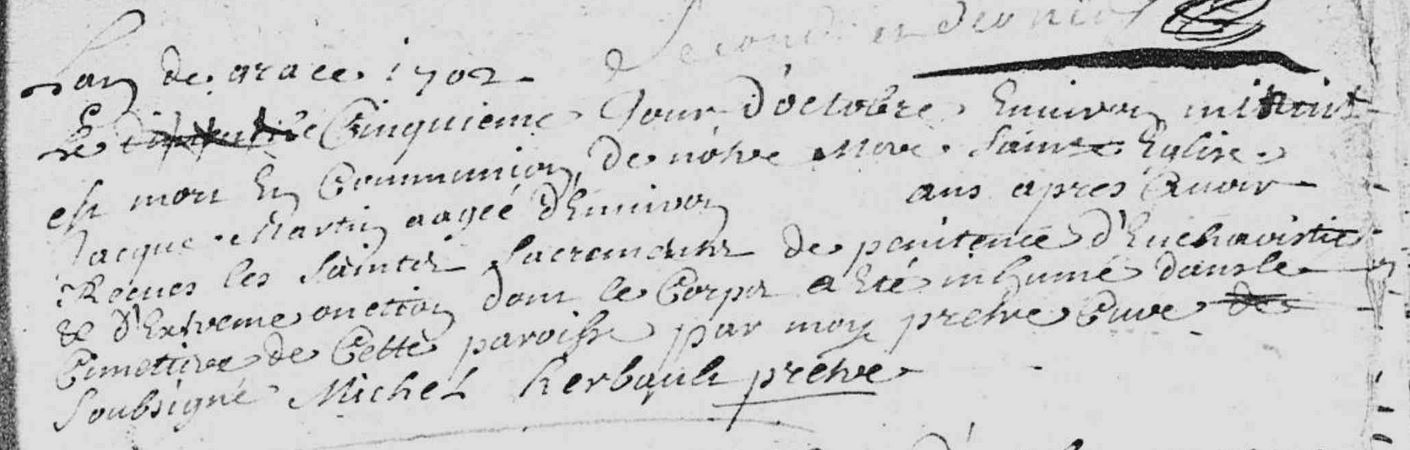 Lan de grace 1702
Le Cinquieme Jour d'octobre Environ minuit
est mort En Communion de nôtre Mere Sainte Eglise
Jacque Martin aagée d'Environ ans apres Avoir
Receus les Saintes Sacremens de penitence d'Eucharistie
& d'Extreme onction dont le Corps a Eté inhumé dans le
Cimetiere de Cette paroisse par moy pretre Cure
Soubsigné Michel Kerbault pretre